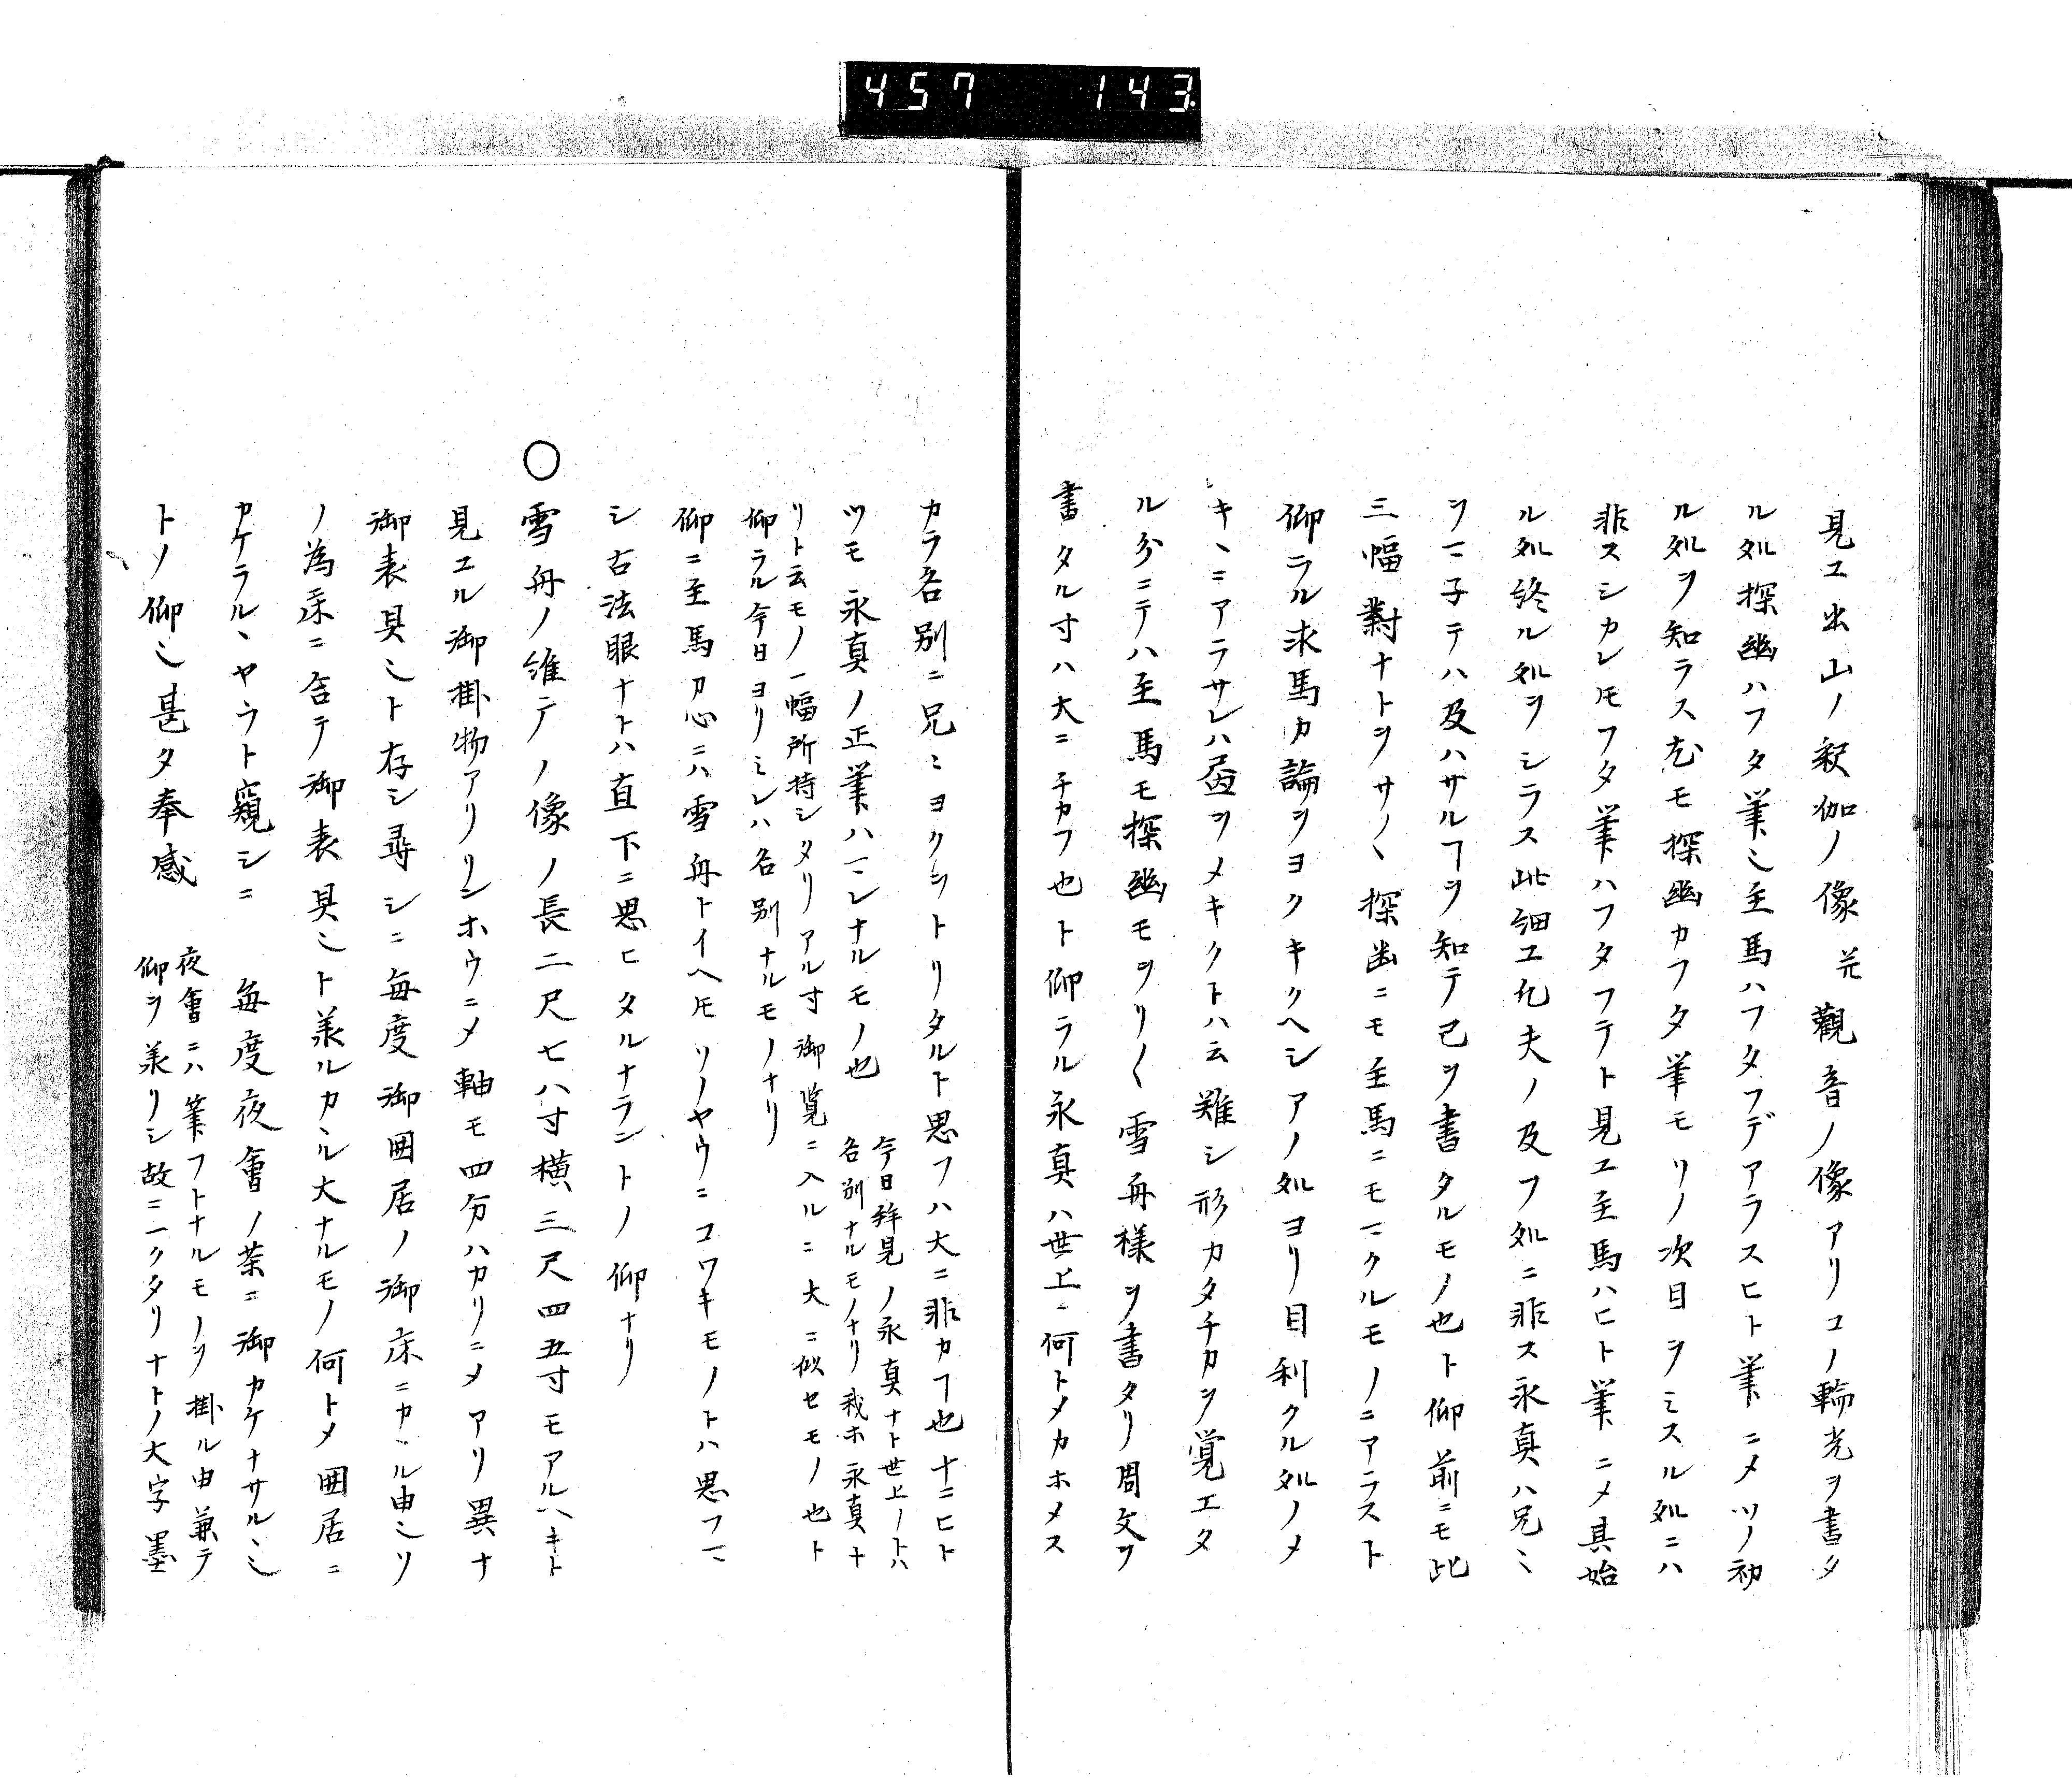 457 143
見ユ出山ノ釈伽ノ像 并 觀音ノ像アリコノ輪光ヲ書タ
ル処探幽ハフタ筆ミ主馬ハフタフデアラスヒト筆ニメツノ初
ル処ヲ知ラス尤モ探幽カフタ筆モリノ次目ヲミスル処ニハ
非スシカレ𪜈フタ筆ハフタフテト見ユ主馬ハヒト筆ニメ其始
ル処終ル処ヲシラス此細工凡夫ノ及フ処ニ非ス永真ハ兄ミ
ヲマ子テハ及ハサルヿヲ知テ己ヲ書タルモノ也ト仰前ニモ此
三幅對ナトヲサノ〱探幽ニモ主馬ニモマクルモノニアラスト
仰ラル求馬カ論ヲヨクキクヘシアノ処ヨリ目利クル処ノメ
キヽニアラサレハ畫ヲメキクトハ云難シ形カタチカヲ覚エタ
ル分ニテハ主馬モ探幽モヲリ〱雪舟様ヲ書タリ周文ヲ
書タル寸ハ大ニチカフ也ト仰ラル永真ハ世上ニ何トメカホメス
カラ各別ニ兄ミヨクシトリタルト思フハ大ニ非カフ也十ニヒト
ツモ永真ノ正筆ハマレナルモノ也 今日拜見ノ永真ナト世上ノトハ
各別ナルモノナリ我ホ永真ナ
リト云モノ一幅所持シタリアル寸御覧ニ入ルニ大ニ似セモノ也ト
仰ラル今日ヨリミレハ各別ナルモノナリ
仰ニ主馬カ心ニハ雪舟トイヘ𪜈リノヤウニコワキモノトハ思フマ
シ古法眼ナトハ直下ニ思ヒタルナラントノ仰ナリ
○雪舟ノ維テノ像ノ長二尺七八寸横三尺四五寸モアルヘキト
見エル御掛物アリリンホウニメ軸モ四分ハカリニメアリ異ナ
御表具ミト存シ尋シニ毎度御囲居ノ御床ニカヽル由ミソ
ノ為床ニ合テ御表具ミト羕ルカヽル大ナルモノ何トメ囲居ニ
カケラルヽヤウト窺シニ 毎度夜會ノ茶ニ御カケナサルヽミ
トノ仰ミ甚タ奉感 夜會ニハ筆フトナルモノヲ掛ル由兼テ
仰ヲ羕リシ故ニ一クタリナトノ大字墨